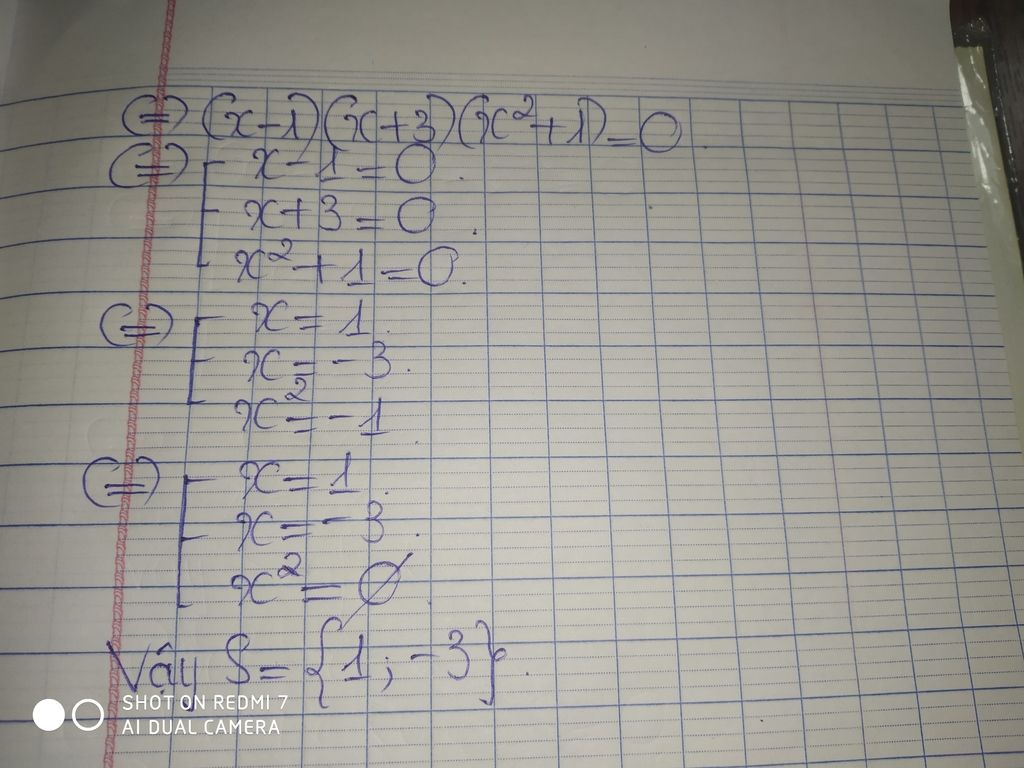 ⇔ (x-1)(x+3)(x²+1)=0.
⇔ [ x-1=0.
x+3=0.
x²+1=0.
⇔ [ x=1.
x=-3.
x²=-1
⇔ [ x=1.
x=-3.
x²=∅.
Vậy S={1;-3}.
SHOT ON REDMI 7
AI DUAL CAMERA